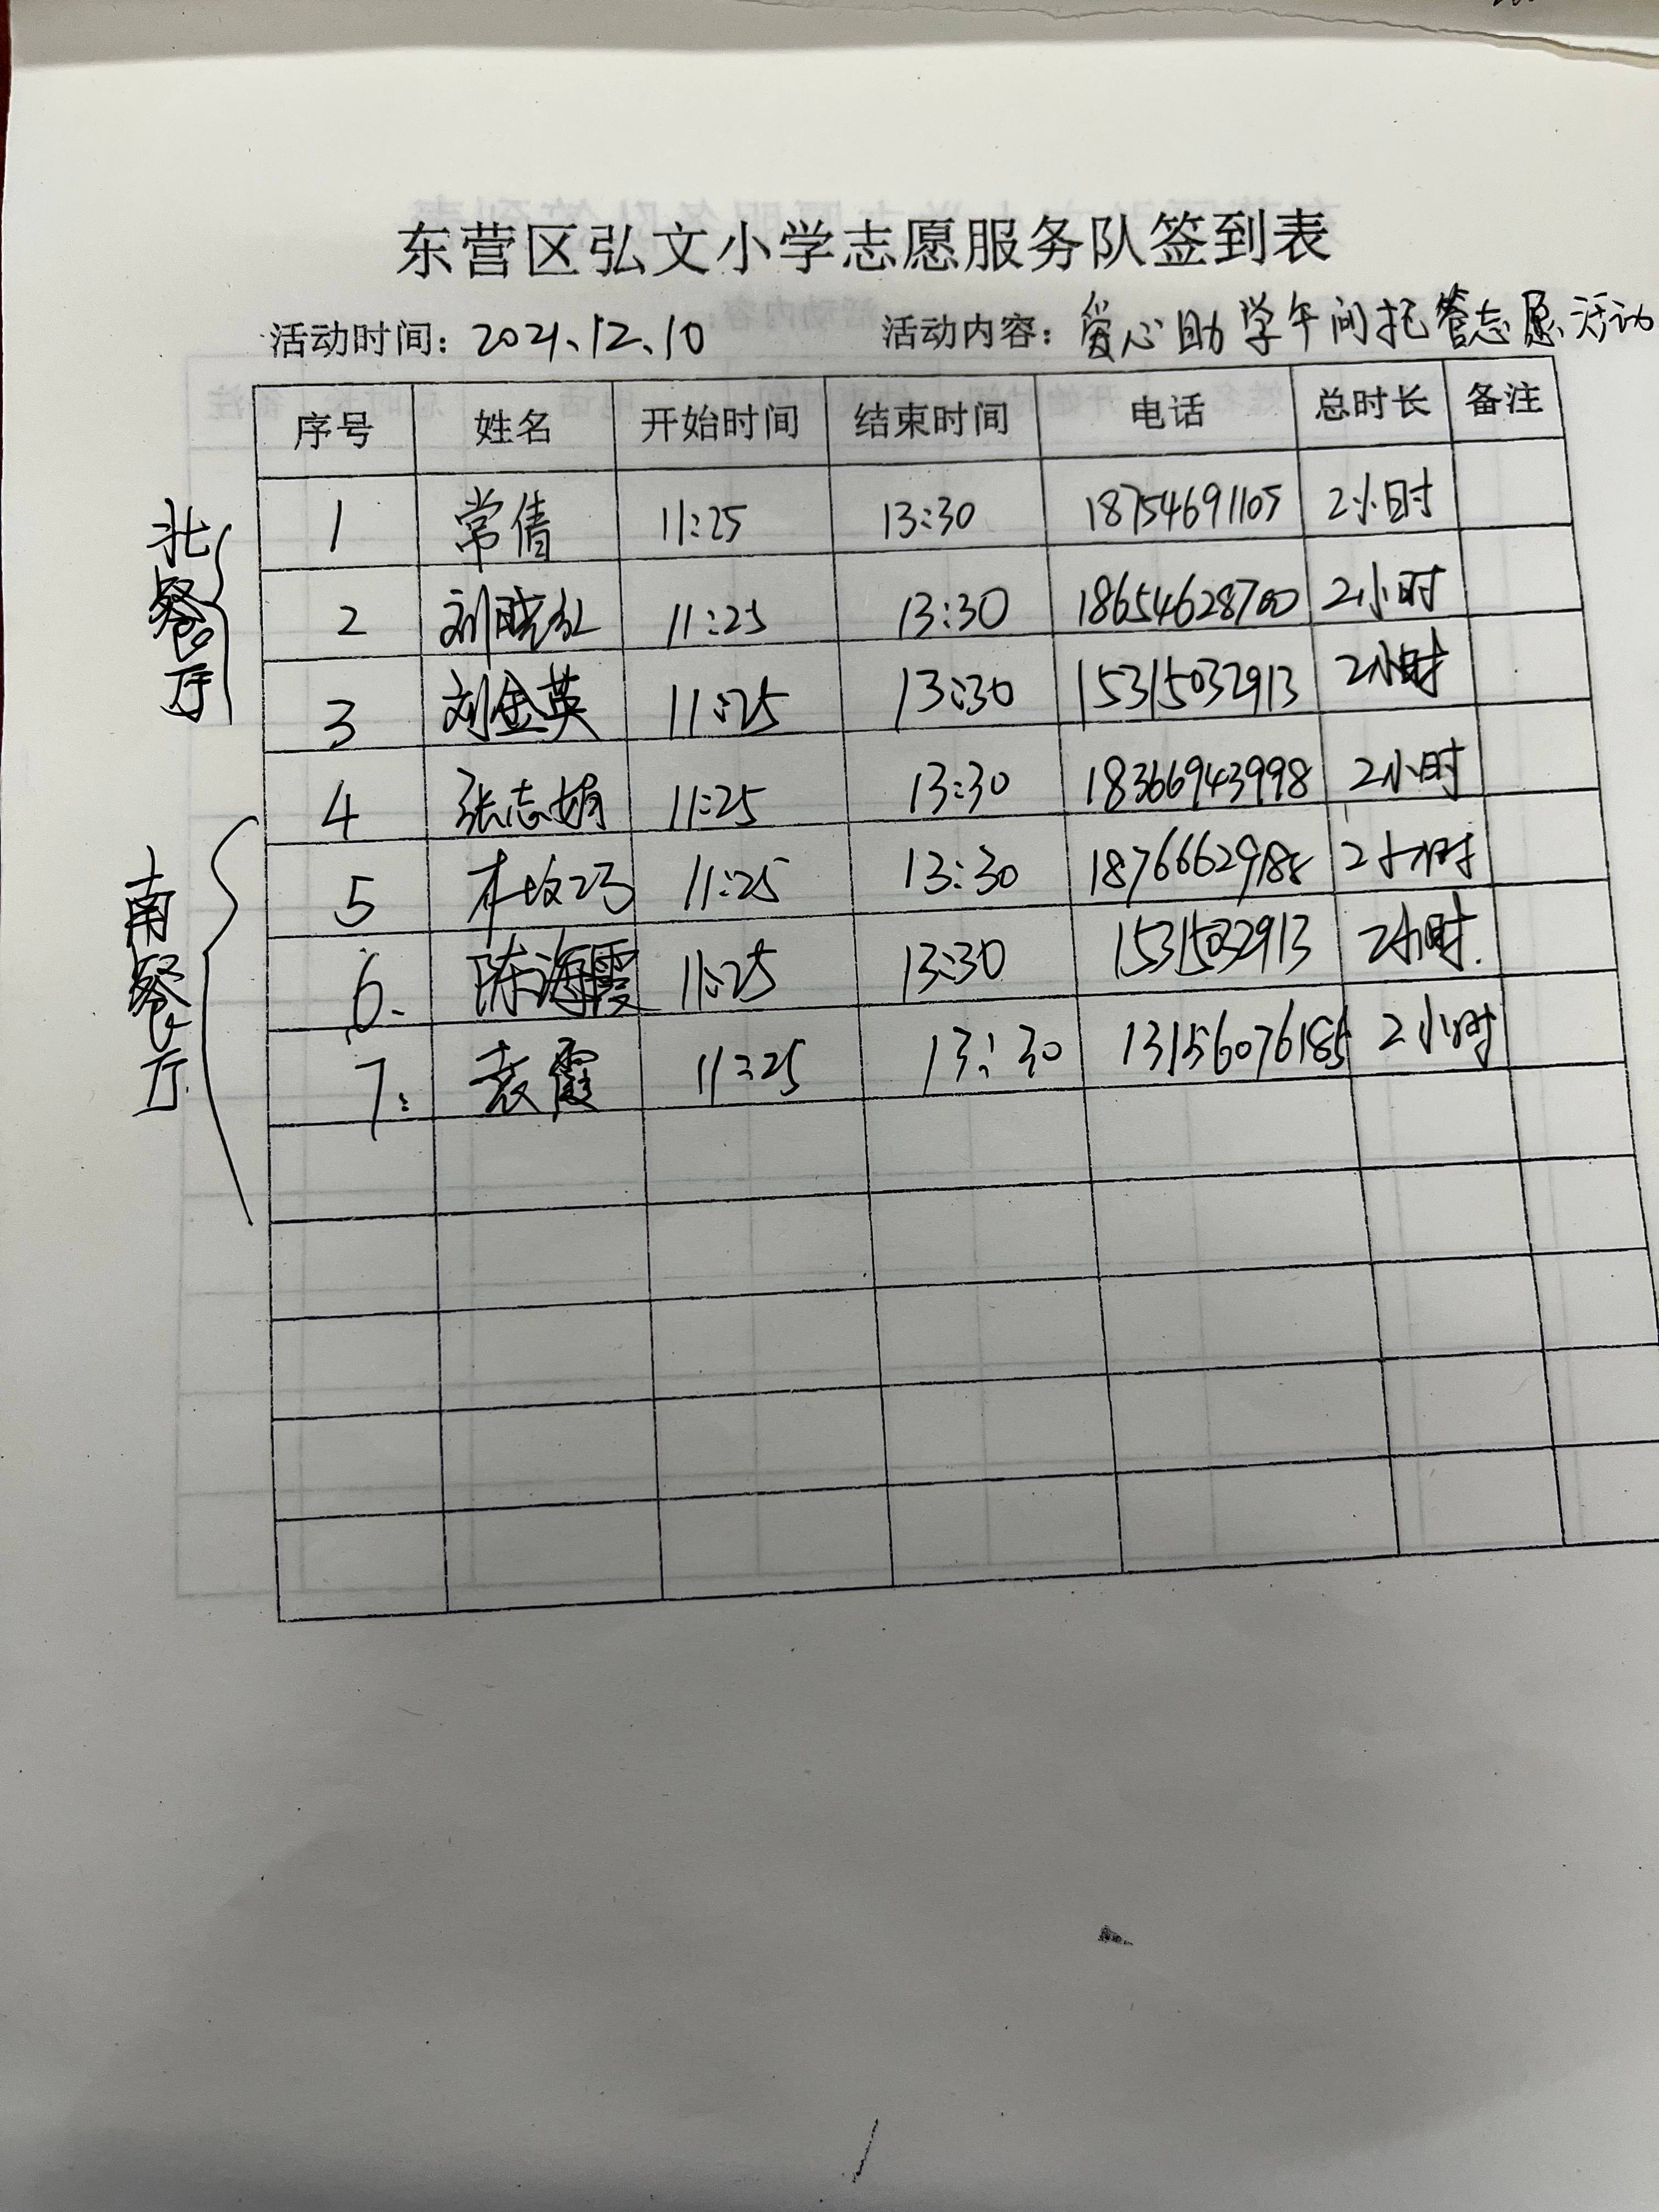 东营区弘文小学志愿服务队签到表
活动时间：2021.12.10 活动内容：爱心助学午间托管志愿活动
序号 姓名 开始时间 结束时间 电话 总时长 备注
北餐厅
1 常倩 11:25 13:30 18754691105 2小时
2 刘晓红 11:25 13:30 18654628700 2小时
3 刘金英 11:25 13:30 15315032913 2小时
南餐厅
4 张志娟 11:25 13:30 18366943998 2小时
5 11:25 13:30 2小时
6. 陈海霞 11:25 13:30 15315032913 2小时.
7: 袁霞 11:25 13:30 13156076185 2小时